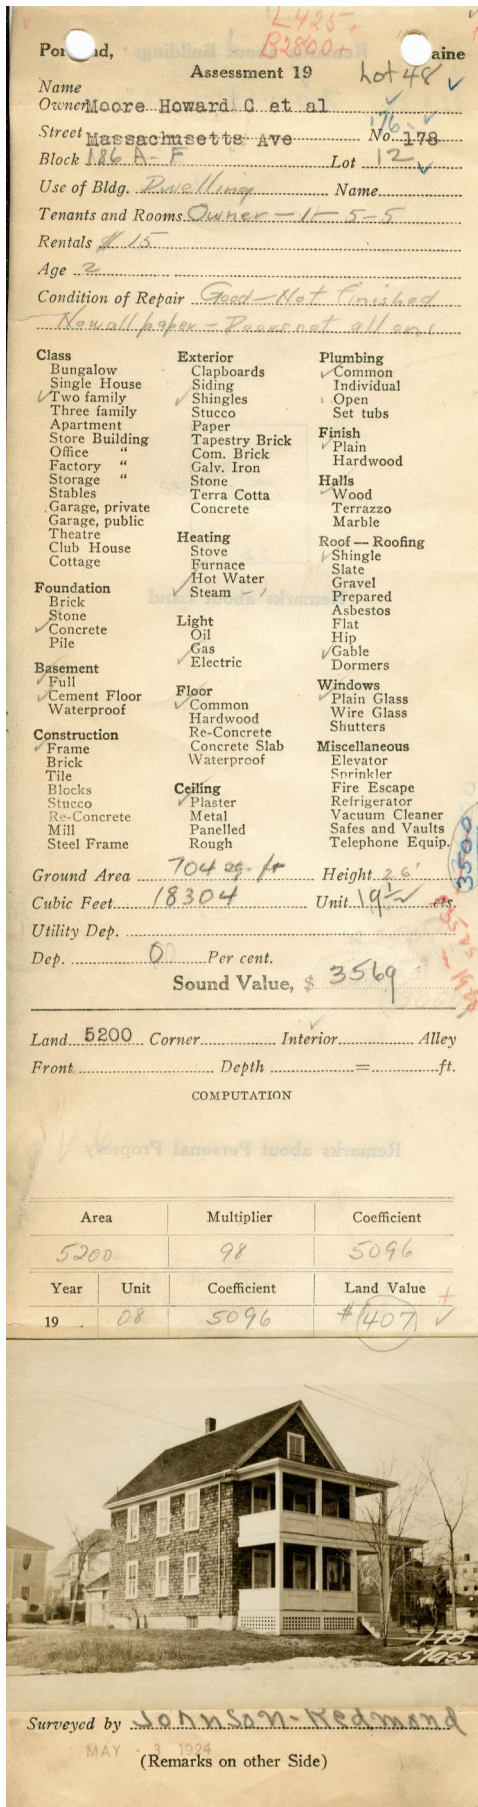 L425+
B2800+
Por and, aine
Assessment 19 Lot 48
Name
Owner Moore Howard C et al
176
Street Massachusetts Ave No. 178
Block 186 A-F Lot 12
Use of Bldg. Dwelling Name
Tenants and Rooms Owner-1-5-5
Rentals $15
Age 2
Condition of Repair Good-Not finished
No wall paper - Doors not all on
Class
Bungalow
Single House
✓Two family
Three family
Apartment
Store Building
Office "
Factory "
Storage "
Stables
Garage, private
Garage, public
Theatre
Club House
Cottage
Foundation
Brick
Stone
✓Concrete
Pile
Basement
✓Full
✓Cement Floor
Waterproof
Construction
✓Frame
Brick
Tile
Blocks
Stucco
Re-Concrete
Mill
Steel Frame
Exterior
Clapboards
Siding
✓Shingles
Stucco
Paper
Tapestry Brick
Com. Brick
Galv. Iron
Stone
Terra Cotta
Concrete
Heating
Stove
Furnace
Hot Water
✓Steam -1
Light
Oil
Gas
✓Electric
Floor
✓Common
Hardwood
Re-Concrete
Concrete Slab
Waterproof
Ceiling
✓Plaster
Metal
Panelled
Rough
Plumbing
✓Common
Individual
Open
Set tubs
Finish
✓Plain
Hardwood
Halls
✓Wood
Terrazzo
Marble
Roof — Roofing
✓Shingle
Slate
Gravel
Prepared
Asbestos
Flat
Hip
✓Gable
Dormers
Windows
✓Plain Glass
Wire Glass
Shutters
Miscellaneous
Elevator
Sprinkler
Fire Escape
Refrigerator
Vacuum Cleaner
Safes and Vaults
Telephone Equip.
3500
Ground Area 704 sq. ft Height 26'
Cubic Feet 18304 Unit 19½ cts.
Utility Dep.
Dep. 0 Per cent.
Sound Value, $ 3569
Land 5200 Corner Interior Alley
Front Depth = ft.
COMPUTATION
Area Multiplier Coefficient
5200 98 5096
Year Unit Coefficient Land Value
19 . 08 5096 $407 ✓
178
Mass
Surveyed by Johnson-Redmond
MAY - 3 1924
(Remarks on other Side)